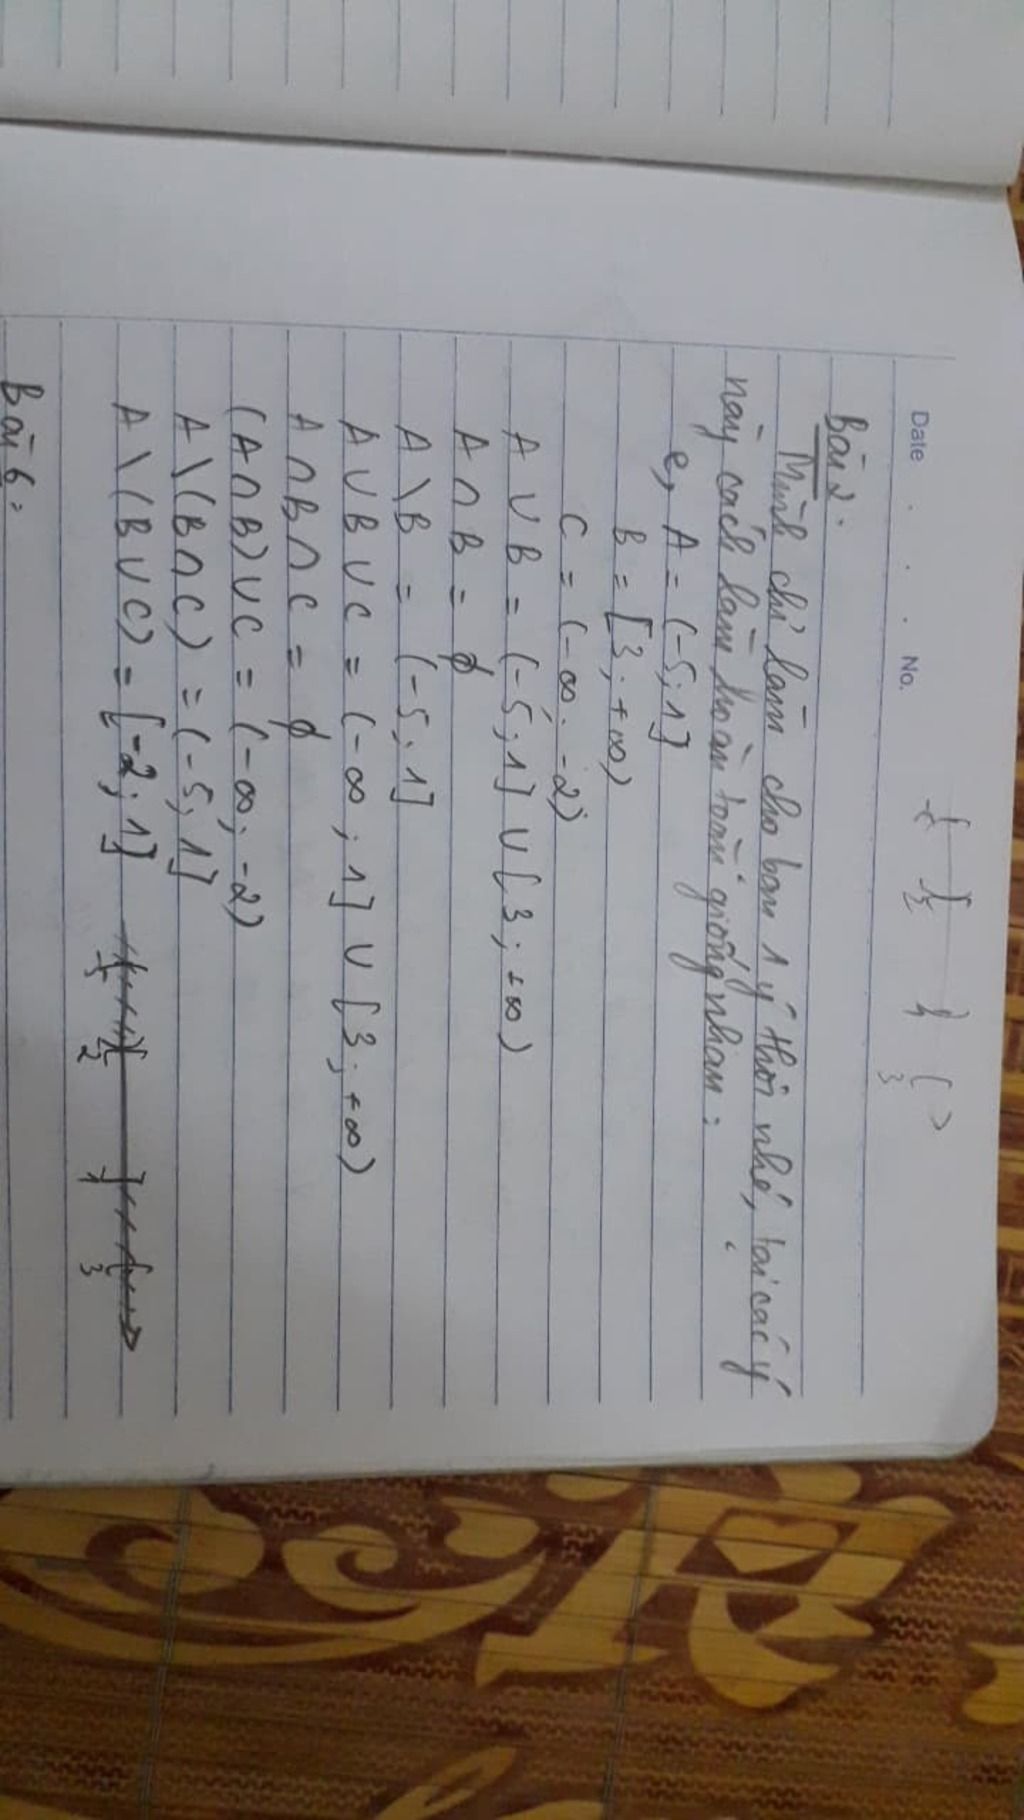 Date . . . No.
-5 -2 1 3
Bài 2:
Mình chỉ làm cho bạn 1 ý thôi nhé, tại các ý
này cách làm hoàn toàn giống nhau:
e, A = (-5; 1]
B = [3; +∞)
C = (-∞; -2)
A ∪ B = (-5; 1] ∪ [3; +∞)
A ∩ B = ∅
A \ B = (-5; 1]
A ∪ B ∪ C = (-∞; 1] ∪ [3; +∞)
A ∩ B ∩ C = ∅
(A ∩ B) ∪ C = (-∞; -2)
A \ (B ∩ C) = (-5; 1]
A \ (B ∪ C) = [-2; 1] -5 -2 1 3
Bài 6: